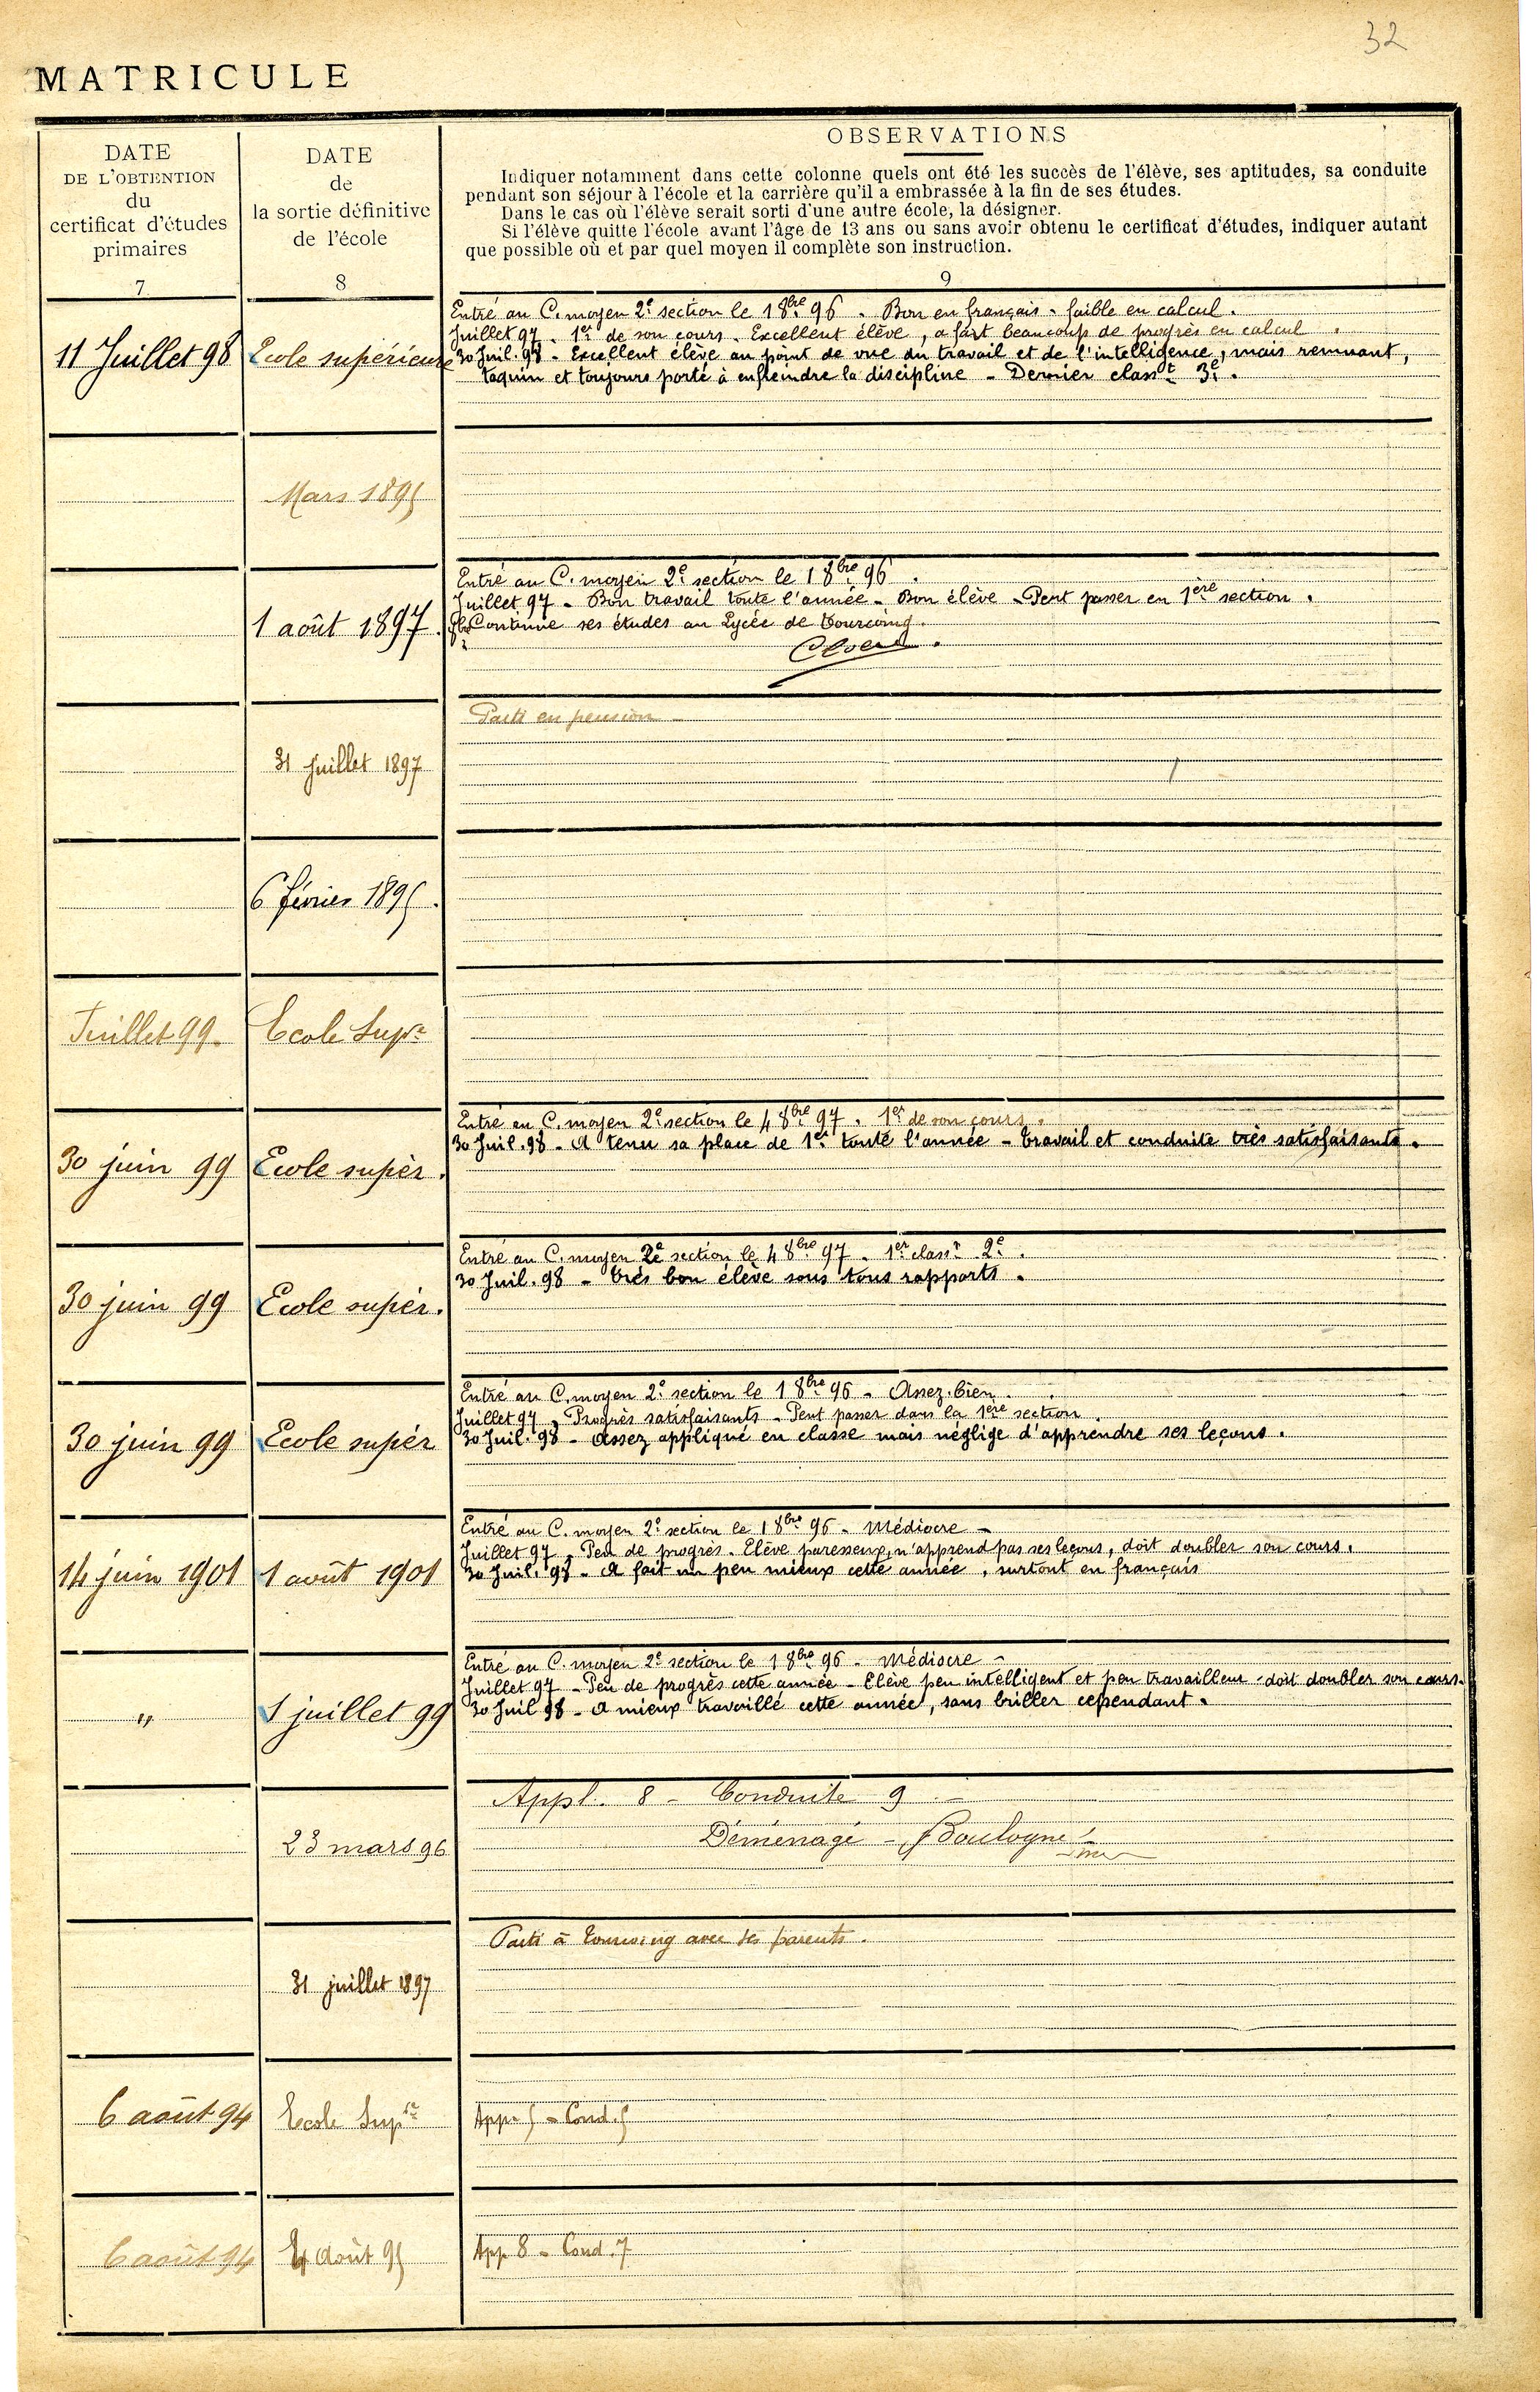 32
MATRICULE
DATE
DE L'OBTENTION
du
certificat d'études
primaires
7
DATE
de
la sortie définitive
de l'école
8
OBSERVATIONS
Indiquer notamment dans cette colonne quels ont été les succès de l'élève, ses aptitudes, sa conduite
pendant son séjour à l'école et la carrière qu'il a embrassée à la fin de ses études.
Dans le cas où l'élève serait sorti d'une autre école, la désigner.
Si l'élève quitte l'école avant l'âge de 13 ans ou sans avoir obtenu le certificat d'études, indiquer autant
que possible où et par quel moyen il complète son instruction.
9
11 Juillet 98
Ecole supérieure
Entré au C. moyen 2e section le 1 8bre 96 . Bon en français . faible en calcul .
Juillet 97 . 1er de son cours . Excellent élève , a fait beaucoup de progrès en calcul .
30 Juil. 98 - Excellent élève au point de vue du travail et de l'intelligence , mais remuant ,
taquin et toujours porté à enfreindre la discipline - Dernier classt 3e .
Mars 1895
1 août 1897 .
Entré au C. moyen 2e section le 1 8bre 96 .
Juillet 97 - Bon travail toute l'année - Bon élève - Peut passer en 1ère section .
Continue ses études au Lycée de Tourcoing .
31 juillet 1897
Parti en pension
6 février 1895 .
Juillet 99 .
Ecole Supre
30 juin 99
Ecole supér .
Entré au C. moyen 2e section le 4 8bre 97 . 1er de son cours .
30 Juil. 98 - A tenu sa place de 1er toute l'année - travail et conduite très satisfaisants .
30 juin 99
Ecole supér .
Entré au C. moyen 2e section le 4 8bre 97 . 1er classt 2e .
30 Juil. 98 - très bon élève sous tous rapports .
30 juin 99
Ecole supér
Entré au C. moyen 2e section le 1 8bre 96 - Assez bien .
Juillet 97 . Progrès satisfaisants - Peut passer dans la 1ère section .
30 Juil. 98 - Assez appliqué en classe mais néglige d'apprendre ses leçons .
14 juin 1901
1 août 1901
Entré au C. moyen 2e section le 1 8bre 96 - Médiocre -
Juillet 97 - Peu de progrès . Elève paresseux, n'apprend pas ses leçons, doit doubler son cours .
30 Juil. 98 - A fait un peu mieux cette année , surtout en français
"
1 juillet 99
Entré au C. moyen 2e section le 1 8bre 96 - Médiocre -
Juillet 97 - Peu de progrès cette année - Elève peu intelligent et peu travailleur - doit doubler son cours .
30 Juil 98 - A mieux travaillé cette année , sans briller cependant .
23 mars 96
Appl. 8 - Conduite 9 -
Déménagé - Boulogne s/
mer
31 juillet 1897
Parti à Tourcoing avec ses parents .
6 août 94
Ecole Supre
App. 5 - Cond. 5
6 août 94
4 Août 95
App 8 - Cond. 7